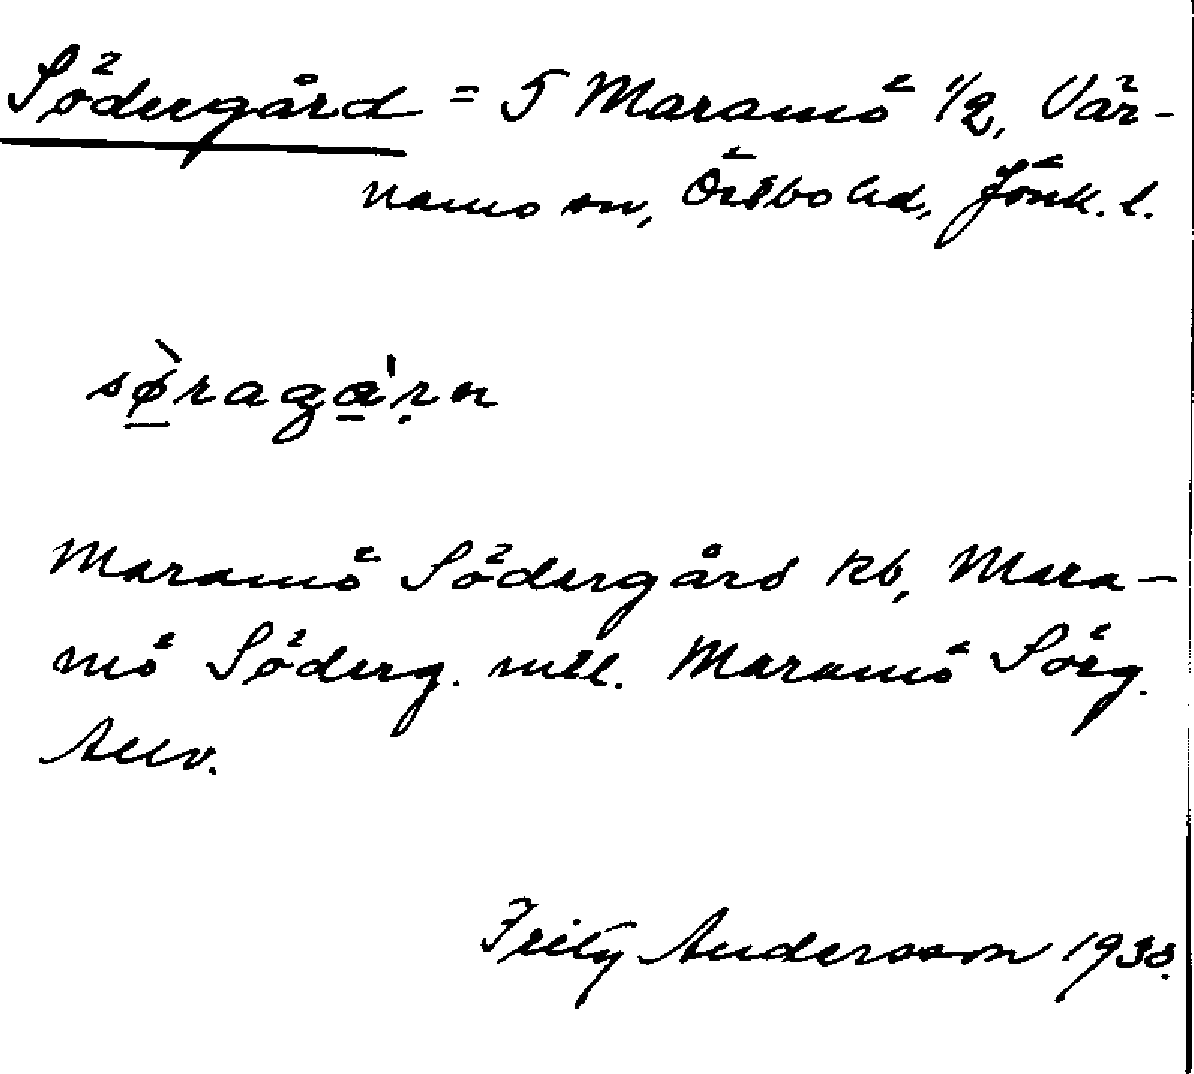 Södergård = 5 Maramö 1/2, Vär-
namo sn, Östbo hd, Jönk. l.
sø̀ragɑ'ṛn
Maramö Södergård kb, Mara-
mö Söderg. mtl. Maramö Sörg.
Allv.
Fritz Andersson 1930.